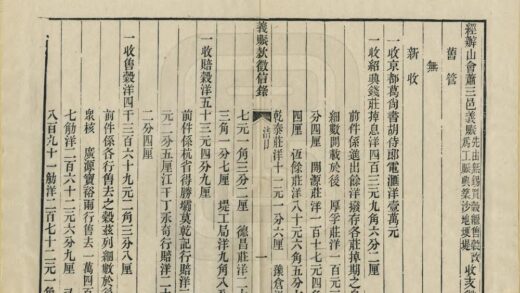 經辦山會蕭三邑義賑 收支
舊管
無
新收
一收京都葛尙書胡侍郎電滙洋壹萬元
一收紹興錢莊掉息洋四百三元九角六分二厘
前件係進出餘洋撥存各莊掉期之息
細數開載於後 厚孚莊洋一百
分四厘 開源莊洋一百十七元四
四厘 恆餘莊洋八十元六角五
乾泰莊洋十二元一分六厘
義賑欵徵信錄 一
七元一角三分二厘 德昌莊洋二十
三角一分七厘 堤工局洋九角八
一收賠穀洋五十三元四分九厘
前件係杭省得勝壩莫乾記行賠洋二
元二分五厘江干丁永奇行賠洋二
二分四厘
一收售穀洋四千三百六十九元二角三分八厘
前件係各行售去之穀茲列細數於後
衆核 廣源寶裕兩行售去一萬四
七觔洋二百六十二元六分九厘
八百九十一觔洋二百七十二元一角